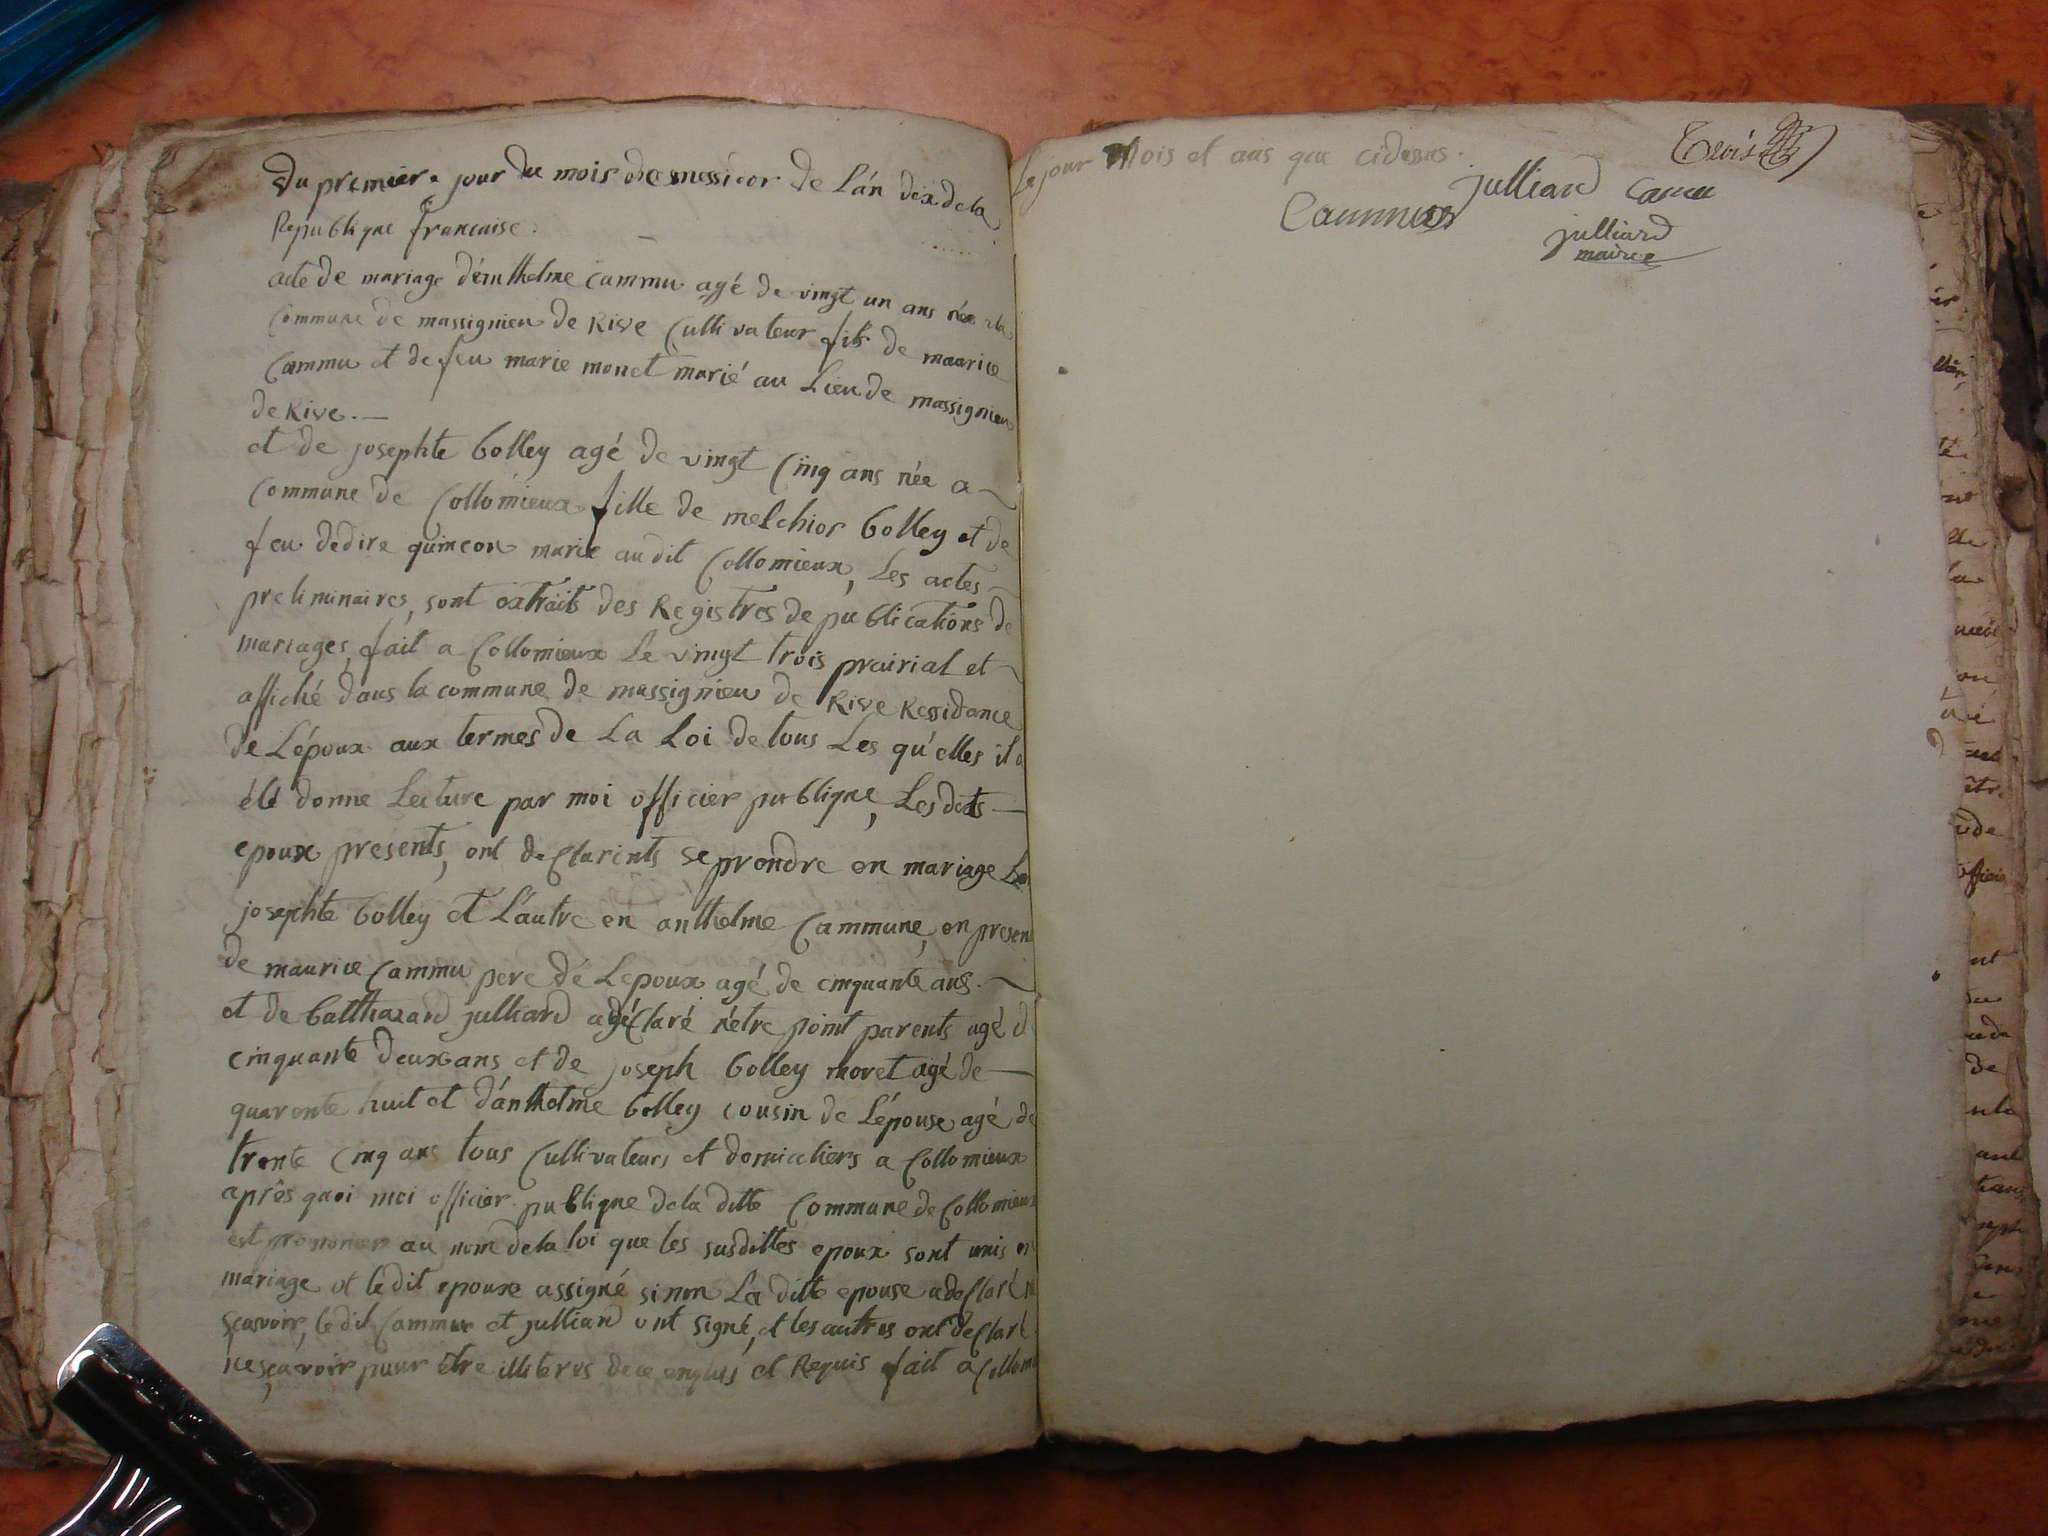 Du premier jour du mois de messicor de L'an dix de la
Republique francaise.
acte de mariage d'enthelme Cammu agé de vingt un ans née a la
Commune de massignieu de Rive Cultivateur fils de maurice
Cammu et de feu marie monet marié au Lieu de massignieu
de Rive.
et de josephte bolley agé de vingt Cinq ans née a
Commune de Collomieux fille de melchior bolley et de
feu dedire quincon marié au dit Collomieux, Les actes
preliminaires, sont extraits des Registres de publications de
mariages, fait a Collomieux Le vingt trois prairial et
affiché dans la commune de massignieu de Rive Ressidance
de L'époux aux termes de La Loi de tous Les qu'elles il a
été donne Lecture par moi officier publique, Les dits
epoux presents, ont declarints se prendre en mariage
josephte bolley et L'autre en anthelme Cammune, en presen
de maurice Cammu pere de Lepoux agé de cinquante ans.
et de balthazard julliard agéclaré n'etre point parents agé d
cinquante deux ans et de joseph bolley moret agé de
quarente huit et d'anthelme bolley cousin de L'épouse agé de
trente Cinq ans tous Cultivateurs et domiceliers a Collomieux
après quoi moi officier publique de la ditte Commune de Collomieux
est prononcer au nom de la loi que les susdittes epoux sont unis en
mariage et le dit epoux assigné sinon La ditte epouse a declaré n
sçavoir, le dit Cammu et julliard ont signé, et les autres ont declaré
ne sçavoir pour etre illiteres de ce enquis et Requis fait a Collom
Le jour Mois et ans que cidesus.
trois
julliard camu
Cammus
julliard
maire